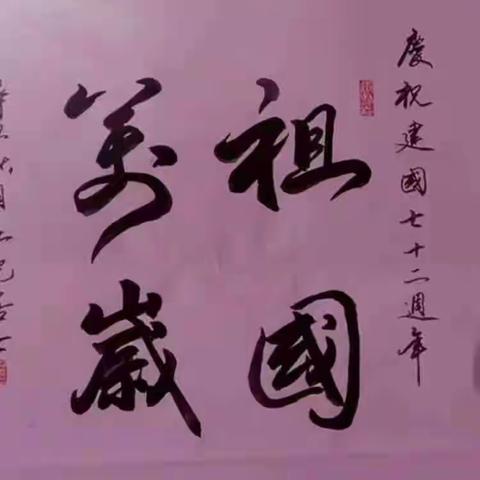 慶祝建國七十二週年
祖國
萬歲